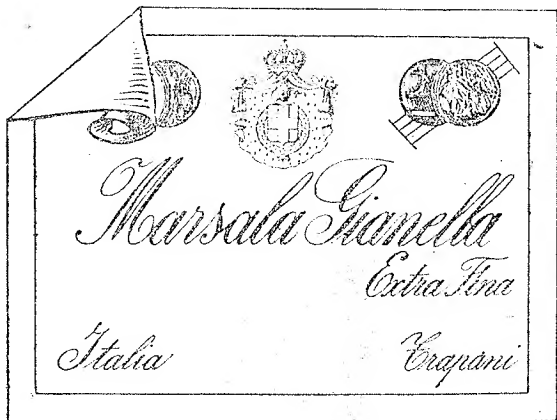 Marsala Gianella
Extra Fina
Italia
Trapani